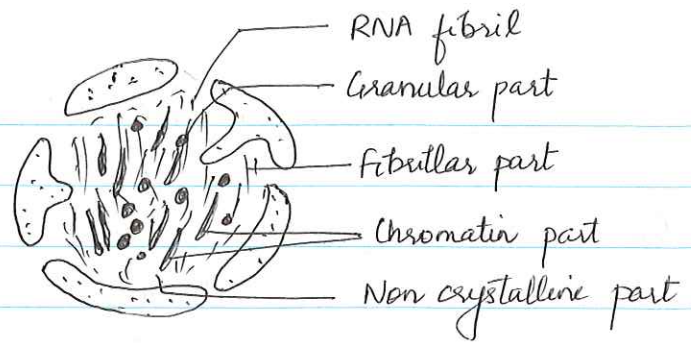 RNA fibril
Granular part
Fibrillar part
Chromatin part
Non crystalline part